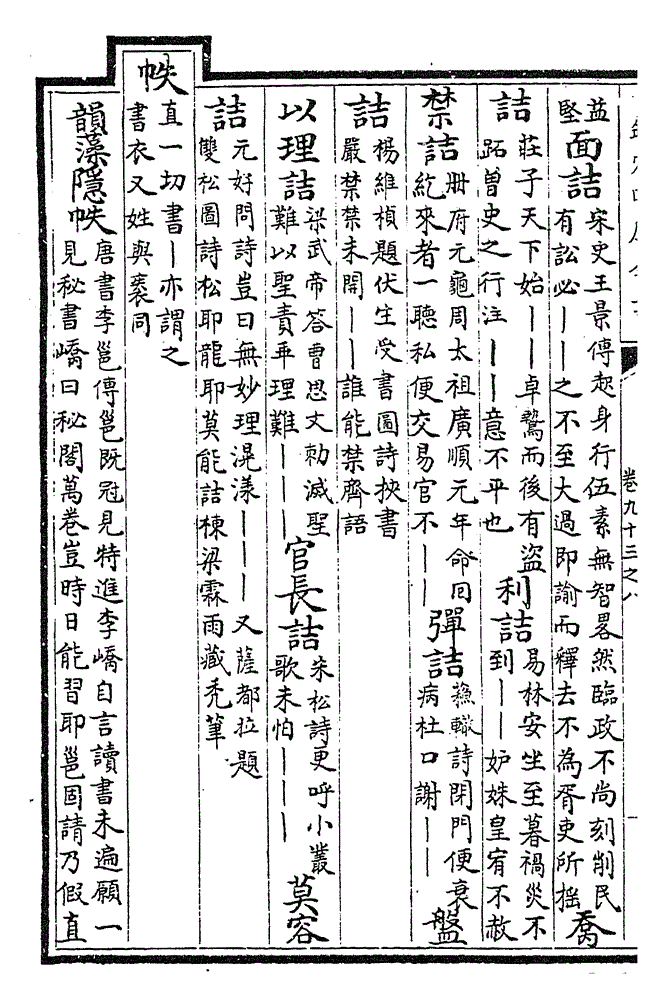 卷九十三之八
益
堅
面詰
宋史王景傳起身行伍素無智畧然臨政不尚刻削民
有訟必丨丨之不至大過即諭而釋去不為胥吏所搖
喬
詰
莊子天下始丨丨卓鷙而後有盜
跖曾史之行注丨丨意不平也
利詰
易林安坐至暮禍災不
到丨丨妒姝皇宥不赦
禁詰
冊府元龜周太祖廣順元年命囘
紇來者一聽私便交易官不丨丨
彈詰
蘓轍詩閉門便衰
病杜口謝丨丨
盤
詰
楊維楨題伏生受書圖詩挾書
嚴禁禁未開丨丨誰能禁齊語
以理詰
梁武帝答曹思文勅滅聖
難以聖責乖理難丨丨丨
官長詰
朱松詩更呼小叢
歌未怕丨丨丨
莫容
詰
元好問詩豈曰無妙理滉漾丨丨丨又薩都拉題
雙松圖詩松耶龍耶莫能詰棟梁霖雨藏禿筆
帙
直一切書丨亦謂之
書衣又姓與袠同
韻藻隱帙
唐書李邕傳邕既冠見特進李嶠自言讀書未遍願一
見秘書嶠曰秘閣萬卷豈時日能習耶邕固請乃假直